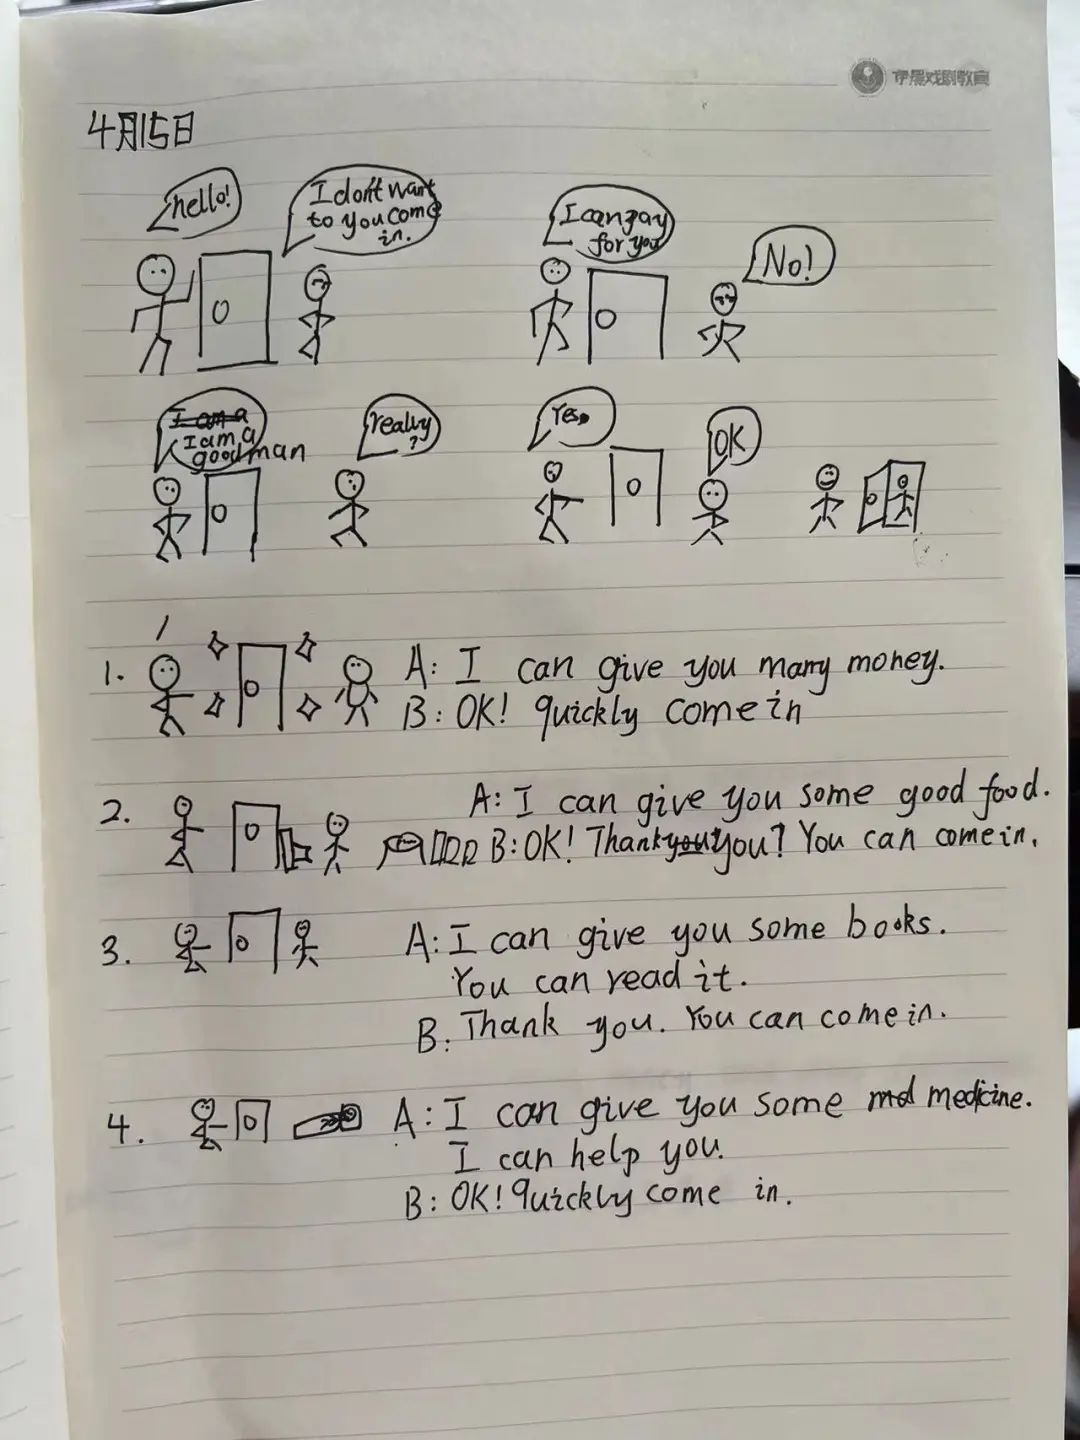 伊晨戏剧教育
4月15日
hello!
I don't want
to you come
in.
I can pay
for you
No!
I am a
I am a
good man
really
?
Yes,
OK
1.
A: I can give you many money.
B: OK! quickly come in
2.
A: I can give you some good food.
B: OK! Thank you you? You can come in.
3.
A: I can give you some books.
You can read it.
B: Thank you. You can come in.
4.
A: I can give you some med medicine.
I can help you.
B: OK! quickly come in.